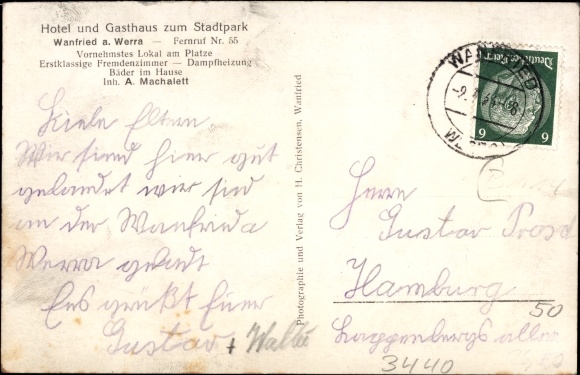 Hotel und Gasthaus zum Stadtpark
Wanfried a. Werra — Fernruf Nr. 55
Vornehmstes Lokal am Platze
Erstklassige Fremdenzimmer — Dampfheizung
Bäder im Hause
Inh. A. Machalett
Photographie und Verlag von H. Christensen, Wanfried
WANFRIED
Deutsches Reich
6 6
Liebe Eltern.
Wir sind hier gut
gelandet wir sind
an der Wanfrieda
Werra gelandt
Es grüßt Euer
Gustav + Walter
Herrn
Gustav
Hamburg
50
Lappenbergs allee
3440